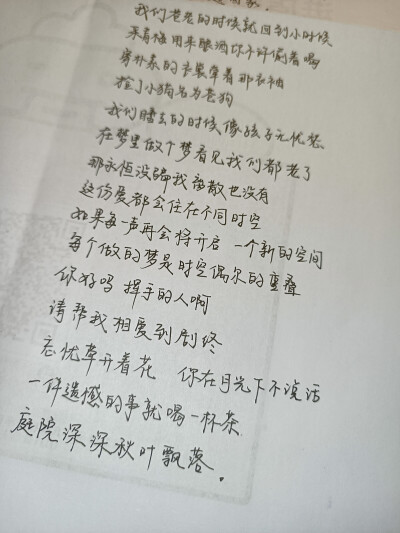 我们老是的时候就回到小时候
采青梅用来酿酒你不许偷着喝
穿外泰的卡裳牵着那衣袖
捡了小猫名为老狗
我们睡去的时候像孩子无忧愁
在梦里做个梦看见我们都老了
那永恒没骗我离散也没有
这份爱都会住在不同时空
如果每一声再会将开启 一个新的空间
每个做的梦是时空偶尔的重叠
你好吗 挥手的人啊
请帮我相爱到剧终
忘忧草开着花 你在月光下不说话
一件遗憾的事就喝一杯茶
庭院深深秋叶飘落.